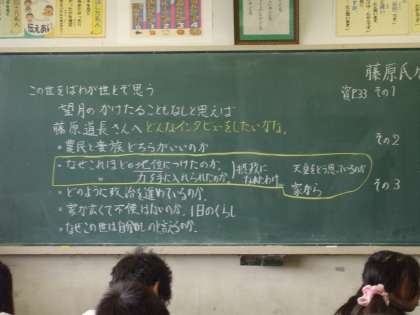 藤原氏が
この世をばわが世とぞ思う
資P.33 その1
望月のかけたることもなしと思えば
藤原道長さんへどんなインタビューをしたいかな。
・農民と貴族どちらがいいのか
その2
・なぜこれほどの地位につけたのか。
〃 力を手に入れられたのか。
摂政になれたわけ
天皇をどう思っているのか
家から
その3
・どのように政治を進めているのか。
・家が広くて不便はないのか。1日のくらし
・なぜこの世は自分のしの と言えるのか。
伝えあい